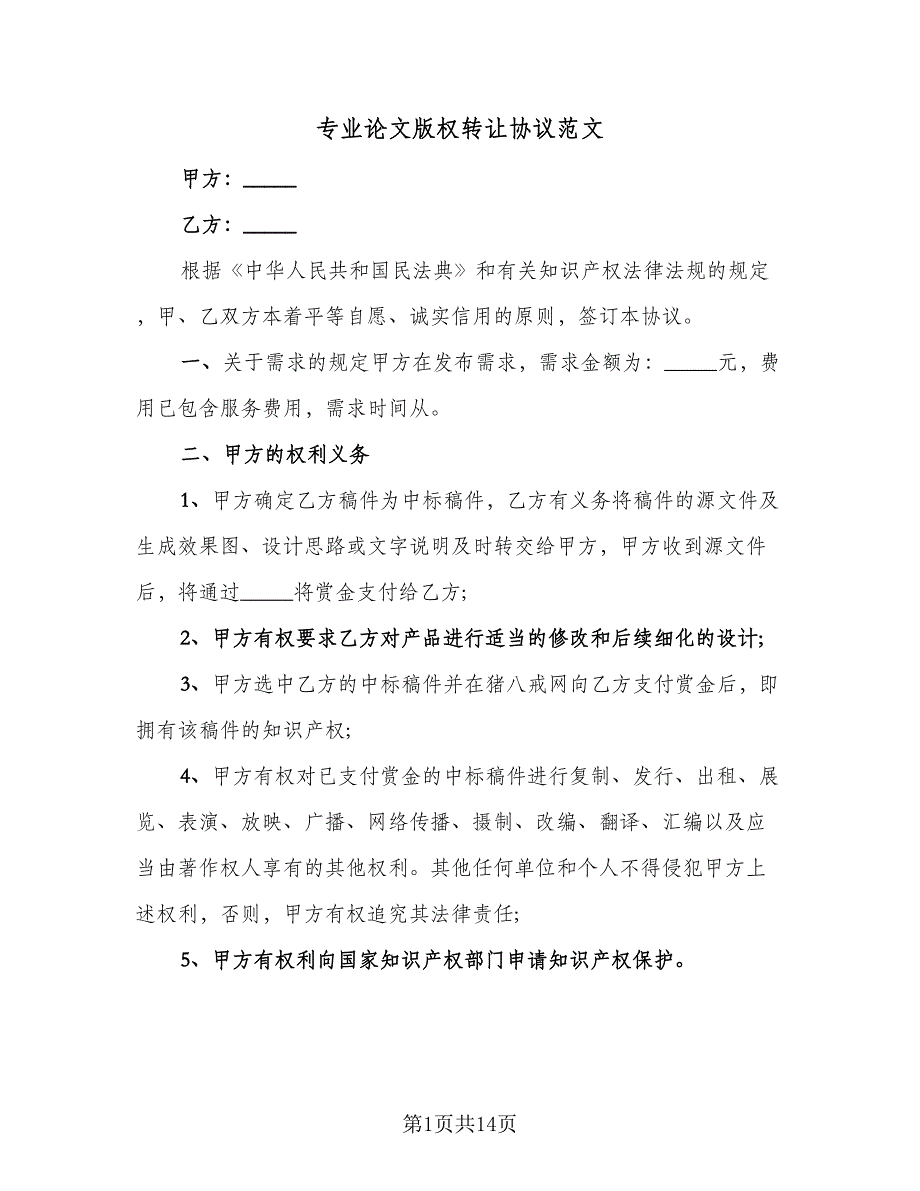 专业论文版权转让协议范文
甲方：_____
乙方：_____
根据《中华人民共和国民法典》和有关知识产权法律法规的规定
，甲、乙双方本着平等自愿、诚实信用的原则，签订本协议。
一、关于需求的规定甲方在发布需求，需求金额为：_____元，费
用已包含服务费用，需求时间从。
二、甲方的权利义务
1、甲方确定乙方稿件为中标稿件，乙方有义务将稿件的源文件及
生成效果图、设计思路或文字说明及时转交给甲方，甲方收到源文件
后，将通过_____将赏金支付给乙方;
2、甲方有权要求乙方对产品进行适当的修改和后续细化的设计;
3、甲方选中乙方的中标稿件并在猪八戒网向乙方支付赏金后，即
拥有该稿件的知识产权;
4、甲方有权对已支付赏金的中标稿件进行复制、发行、出租、展
览、表演、放映、广播、网络传播、摄制、改编、翻译、汇编以及应
当由著作权人享有的其他权利。其他任何单位和个人不得侵犯甲方上
述权利，否则，甲方有权追究其法律责任;
5、甲方有权利向国家知识产权部门申请知识产权保护。
第1页共14页